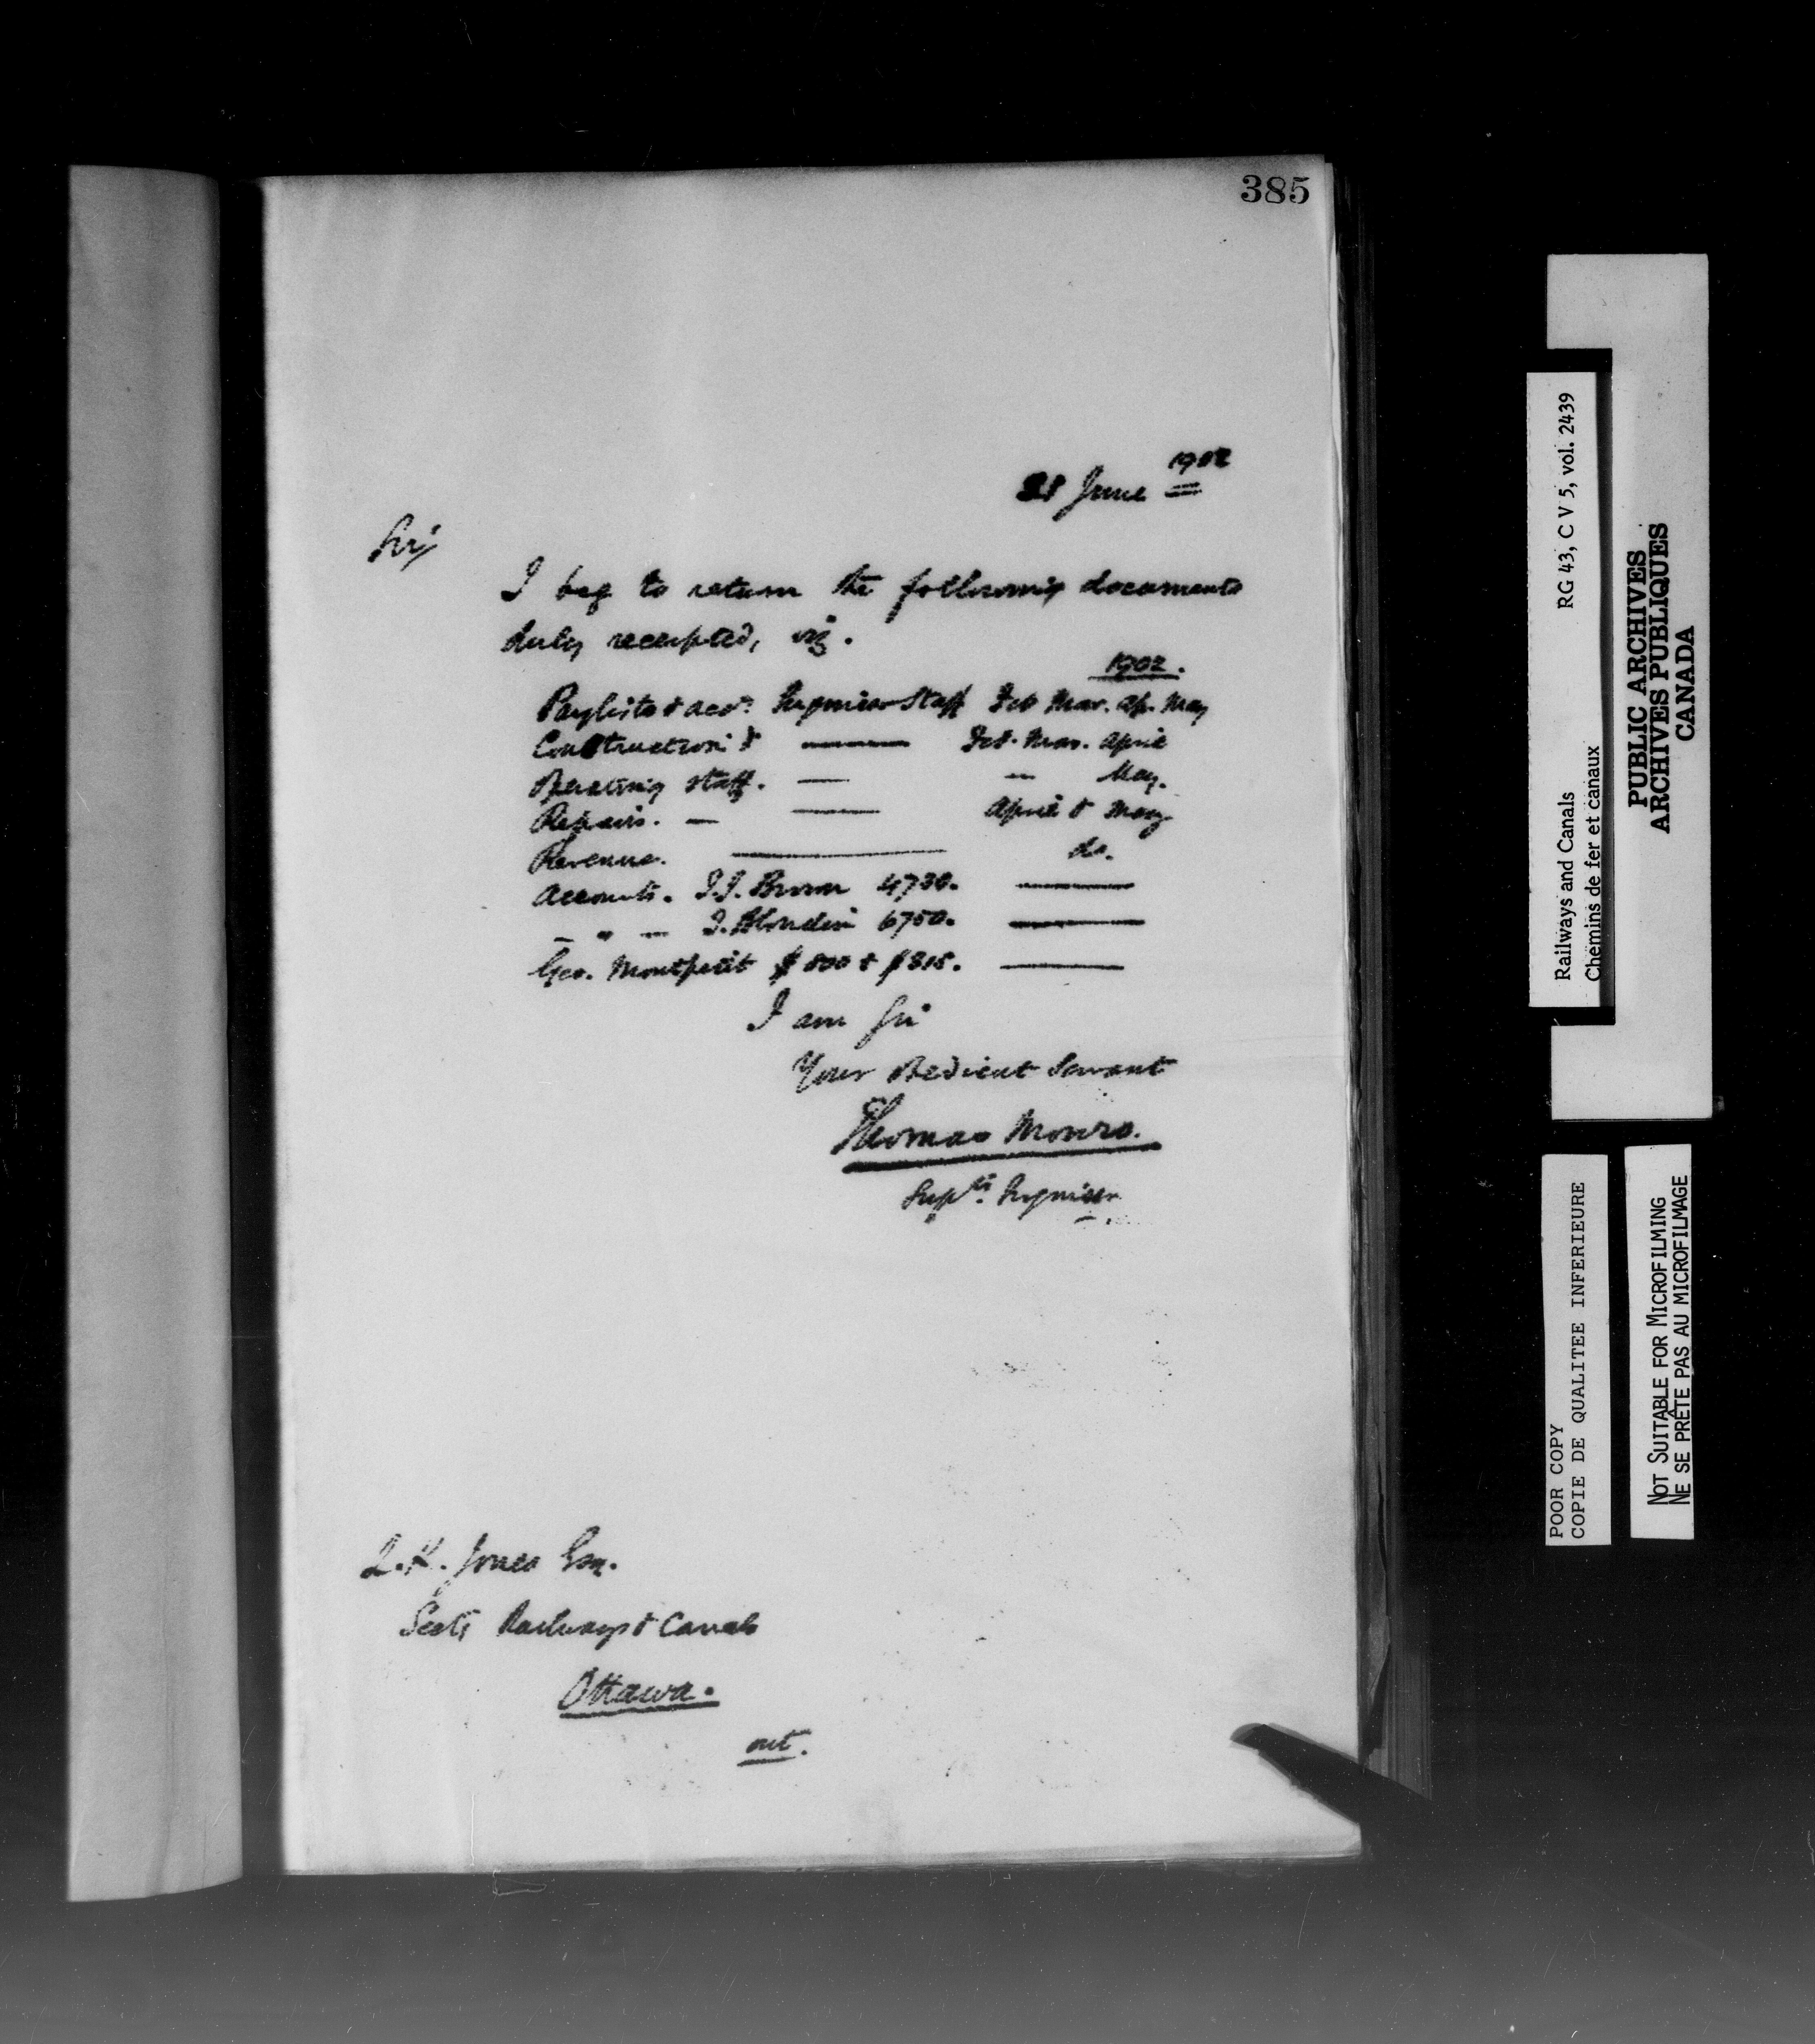 385
June 1902
Sir/
I beg to return the following documents
duly receipted, viz.
1902.
Paylists & accts. Engineer Staff Feb Mar. Ap. May
Construction & —— Feb. Mar. April
Operating staff. — — May.
Repairs. — — April & May
Revenue. —— do.
Accounts. J.J. Brown 4730. ——
— " — J. Blondin 6750. ——
Geo. Montpetit $800 & $315. ——
I am Sir
Your Obedient Servant
Thomas Monro.
Suptg. Engineer
L.K. Jones Esq.
Secty Railways & Canals
Ottawa.
Railways and Canals RG 43, C V 5, vol. 2439
Chemins de fer et canaux
PUBLIC ARCHIVES
ARCHIVES PUBLIQUES
CANADA
POOR COPY
COPIE DE QUALITEE INFERIEURE
NOT SUITABLE FOR MICROFILMING
NE SE PRÊTE PAS AU MICROFILMAGE